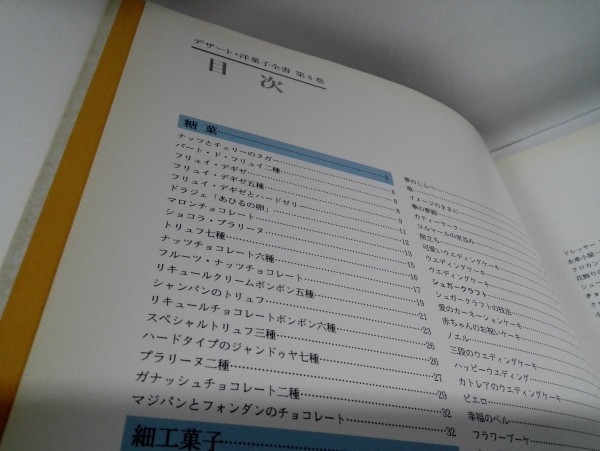 デザート・洋菓子全書 第5巻
目次
糖菓 5
ナッツとチェリーのヌガー 6
パート・ド・フリュイ二種 6
フリュイ・デギゼ 8
フリュイ・デギゼ五種 8
フリュイ・デギゼとハードゼリ 9
ドラジェ「あひるの卵」 11
マロンチョコレート 12
ショコラ・プラリーヌ 13
トリュフ七種 15
ナッツチョコレート六種 16
フルーツ・ナッツチョコレート 17
リキュールクリームボンボン五種 19
シャンパンのトリュフ 21
リキュールチョコレートボンボン六種 23
スペシャルトリュフ三種 26
ハードタイプのジャンドゥヤ七種 26
プラリーヌ二種 27
ガナッシュチョコレート二種 29
マジパンとフォンダンのチョコレート 32
32
細工菓子
夢のしらべ
イメージのままに
春の夢殿
カティーサーク
コルマールの家並み
旅立ち
可愛いウエディングケーキ
ウエディングケーキ
ウエディングケーキ
シュガークラフト
シュガークラフトの技法
愛のカーネーションケーキ
赤ちゃんのお祝いケーキ
ノエル
三段のウエディングケーキ
ハッピーウエディング
カトレアのウエディングケーキ
ピエロ
幸福のベル
フラワーブーケ
ドレッサー
水車小屋
クロカン